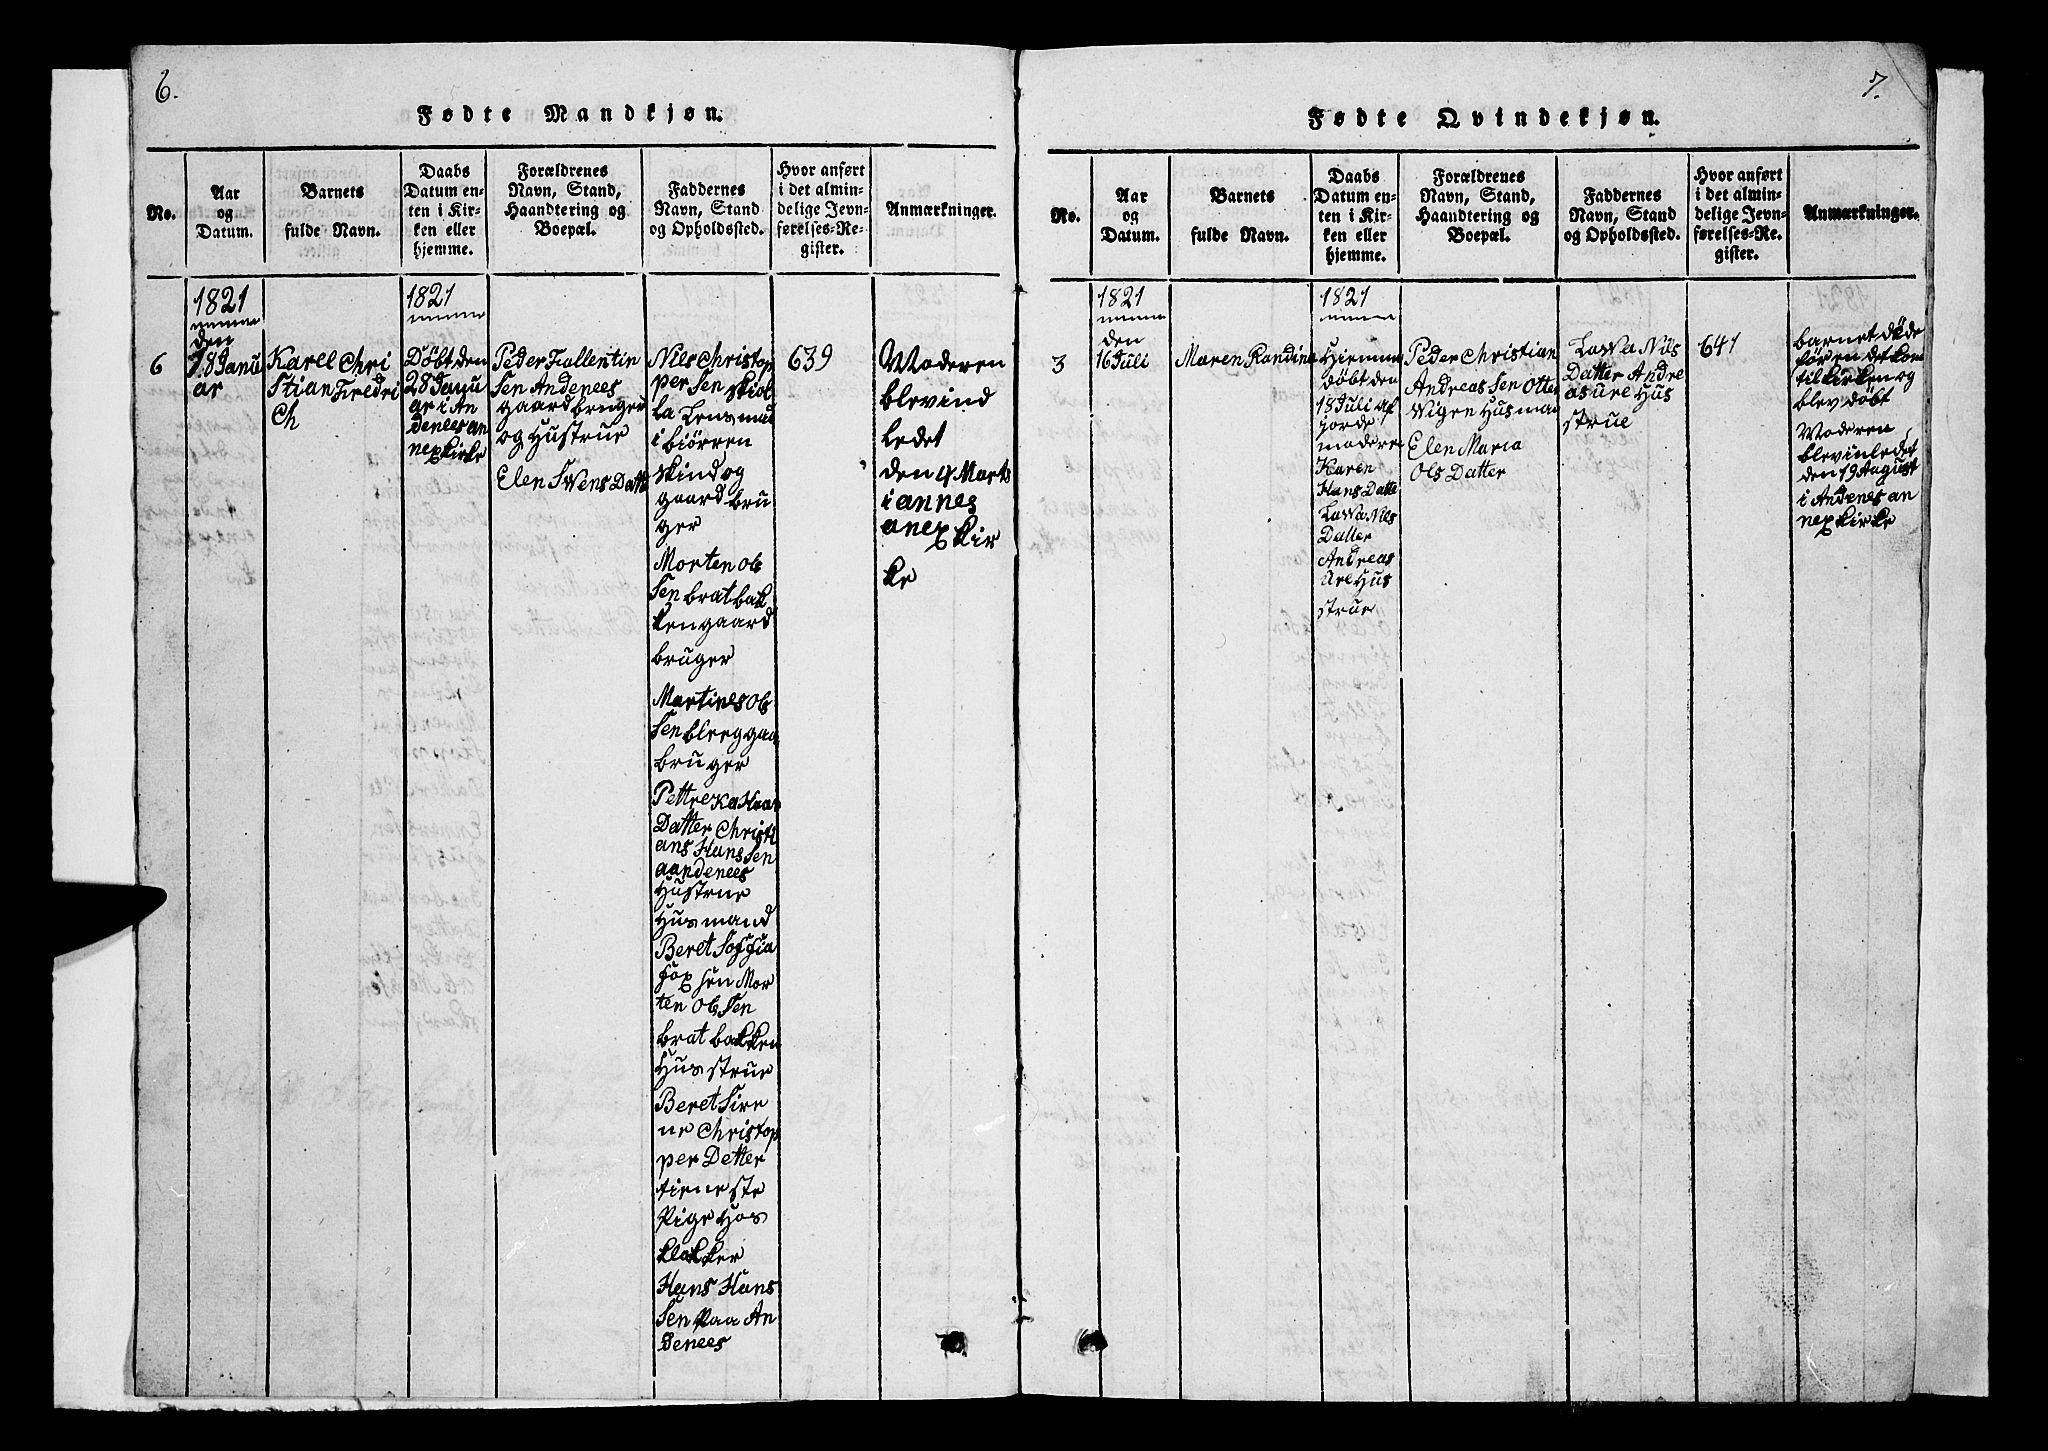 6.
Fødte Mandkjøn.
No.
Aar
og
Datum.
Barnets
fulde Navn.
Daabs
Datum en-
ten i Kir-
ken eller
hjemme.
Forældrenes
Navn, Stand,
Haandtering og
Boepæl.
Faddernes
Navn, Stand
og Opholdssted.
Hvor anført
i det almin-
delige Jevn-
førelses-Re-
gister.
Anmærkninger.
6
1821
den
18 Janu
ar
Karel Chri
Stian Fredri
Ch
1821
Døbt den
28 Janu
ar i An
denees an
nex kirke
Peder Fallentin
Sen Andenees
gaard bruger
og Hustrue
Elen Swens Datt
Nils Christop
per Sen skiol
la Lens mad
i biørren
skind og
gaard bru
ger
Morten Ols
Sen brat bak
ken gaard
bruger
Martines Ols
Sen bleeg gaa
bruger
Pettreka Haa
Datter Christi
ans Hans Sen
aandenees
Hustrue
Husmand
Beret Soffia
Fox sen Mor
ten Ols Sen
brat bakken
Hus strue
Beret Sire
ne Christop
per Detter
tiene ste
Pige Hos
klokker
Hans Hans
Sen Paa An
denees
639
Moderen
blev ind
ledet
den 4 Marts
i annes
anex kir
ke
7.
Fødte Qvindekjøn.
No.
Aar
og
Datum.
Barnets
fulde Navn.
Daabs
Datum en-
ten i Kir-
ken eller
hjemme.
Forældrenes
Navn, Stand,
Haandtering og
Boepæl.
Faddernes
Navn, Stand
og Opholdssted.
Hvor anført
i det almin-
delige Jevn-
førelses-Re-
gister.
Anmærkninger.
3
1821
den
16 Juli
Maren Randina
1821
Hiemme
døbt den
18 Juli af
jorde
modere
Karen
Hans Datte
Lawa Nils
Datter
Andreas
Ure Hus
strue
Peder Christian
Andreas Sen Otter
Wigen Hus man
Elen Maria
Ols Datter
Lawa Nils
Datter Andre
as ure Hus
strue
641
barnet døde
før en det kom
til kirken og
blev døbt
Moderen
blev inledet
den 19 August
i Andenes an
nex kirke